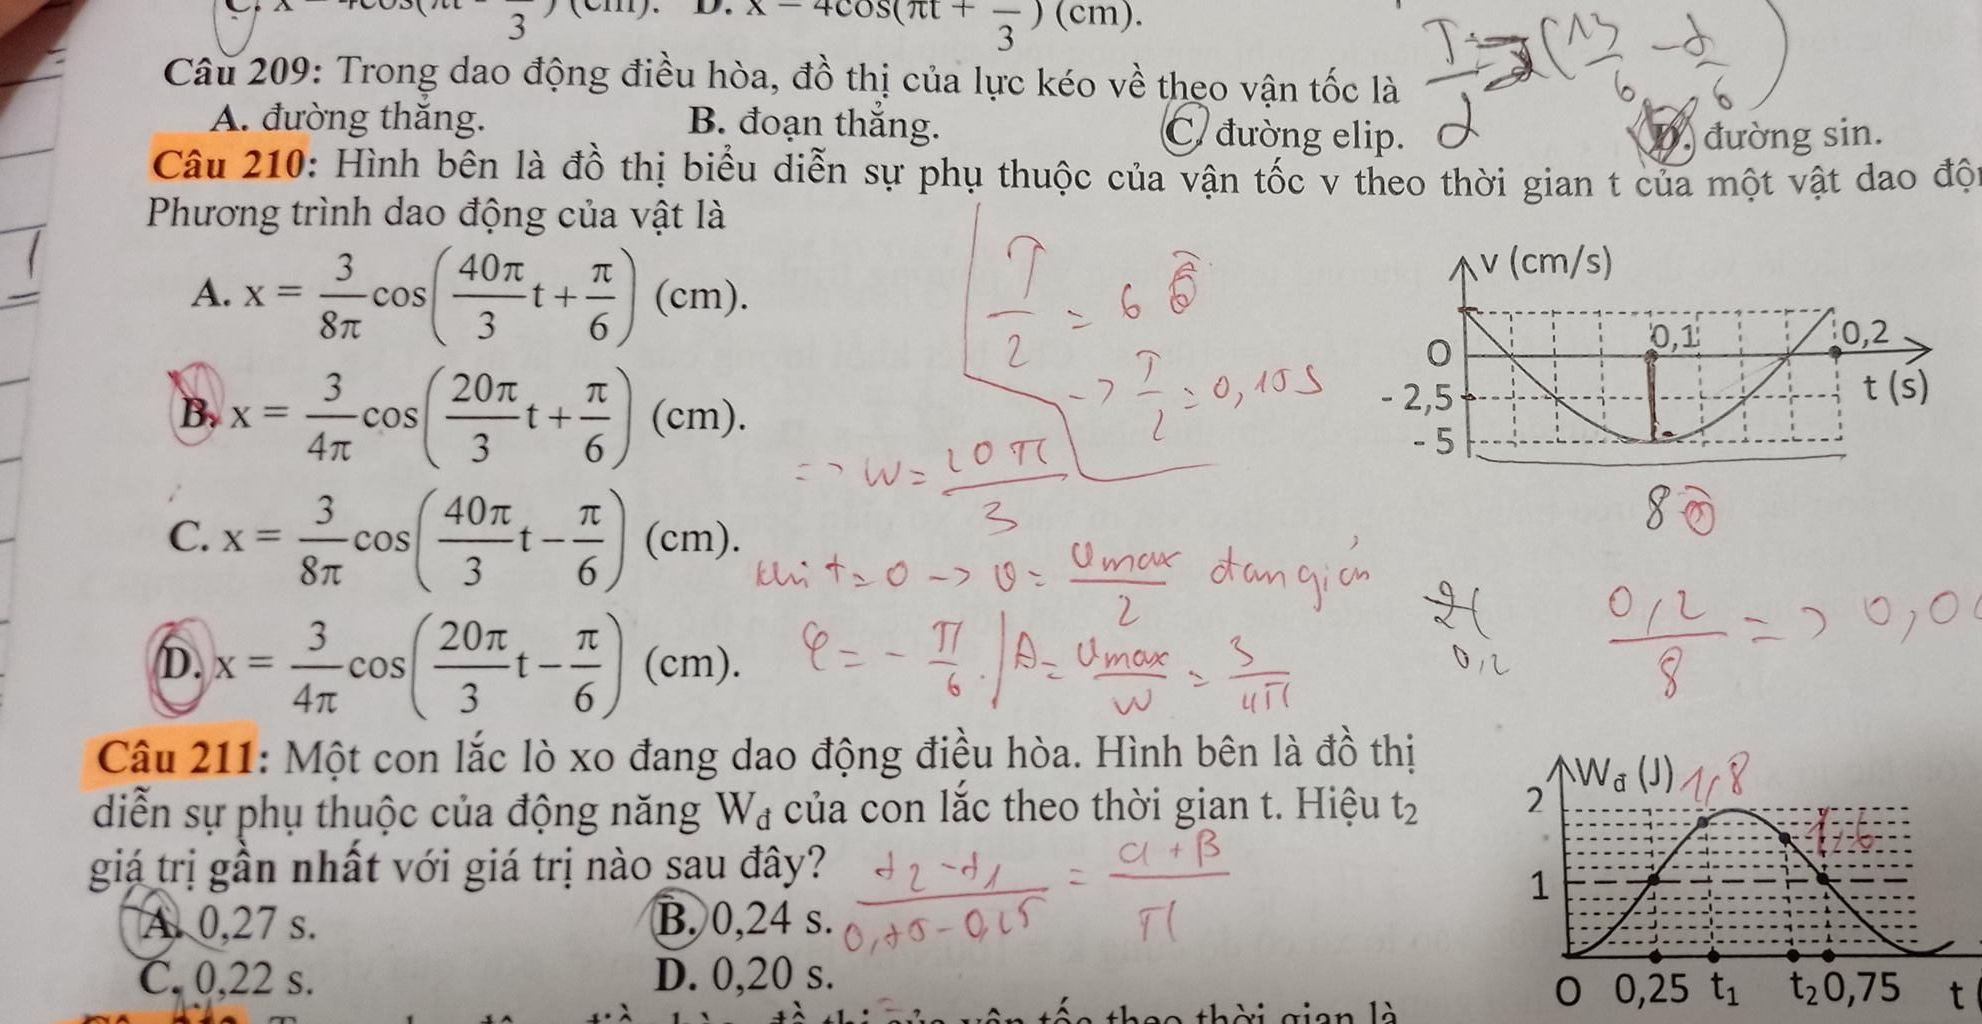 x = 4cos(πt + π/3) (cm). D. x = 4cos(πt + π/3) (cm).
Câu 209: Trong dao động điều hòa, đồ thị của lực kéo về theo vận tốc là
A. đường thẳng. B. đoạn thẳng. C. đường elip. D. đường sin.
Câu 210: Hình bên là đồ thị biểu diễn sự phụ thuộc của vận tốc v theo thời gian t của một vật dao
Phương trình dao động của vật là
A. x = 3/8π cos(40π/3 t + π/6) (cm).
B. x = 3/4π cos(20π/3 t + π/6) (cm).
C. x = 3/8π cos(40π/3 t − π/6) (cm).
D. x = 3/4π cos(20π/3 t − π/6) (cm).
v (cm/s)
0,1
0,2
O
t (s)
- 2,5
- 5
T/2 = 6 ô
-> T/2 = 0,15 s
=> W = 20π/3
8 ô
khi t = 0 -> v = vmax/2 đang giảm
φ = - π/6 . | A = vmax/W = 3/4π
0,2/8 =>
0,2
Câu 211: Một con lắc lò xo đang dao động điều hòa. Hình bên là đồ thị
diễn sự phụ thuộc của động năng Wđ của con lắc theo thời gian t. Hiệu t2
giá trị gần nhất với giá trị nào sau đây?
A. 0,27 s. B. 0,24 s.
C. 0,22 s. D. 0,20 s.
t2 - t1 / 0,75 - 0,25 = α + β / π
Wđ (J) 1,8
2
1,6
1
O 0,25 t1 t2 0,75 t